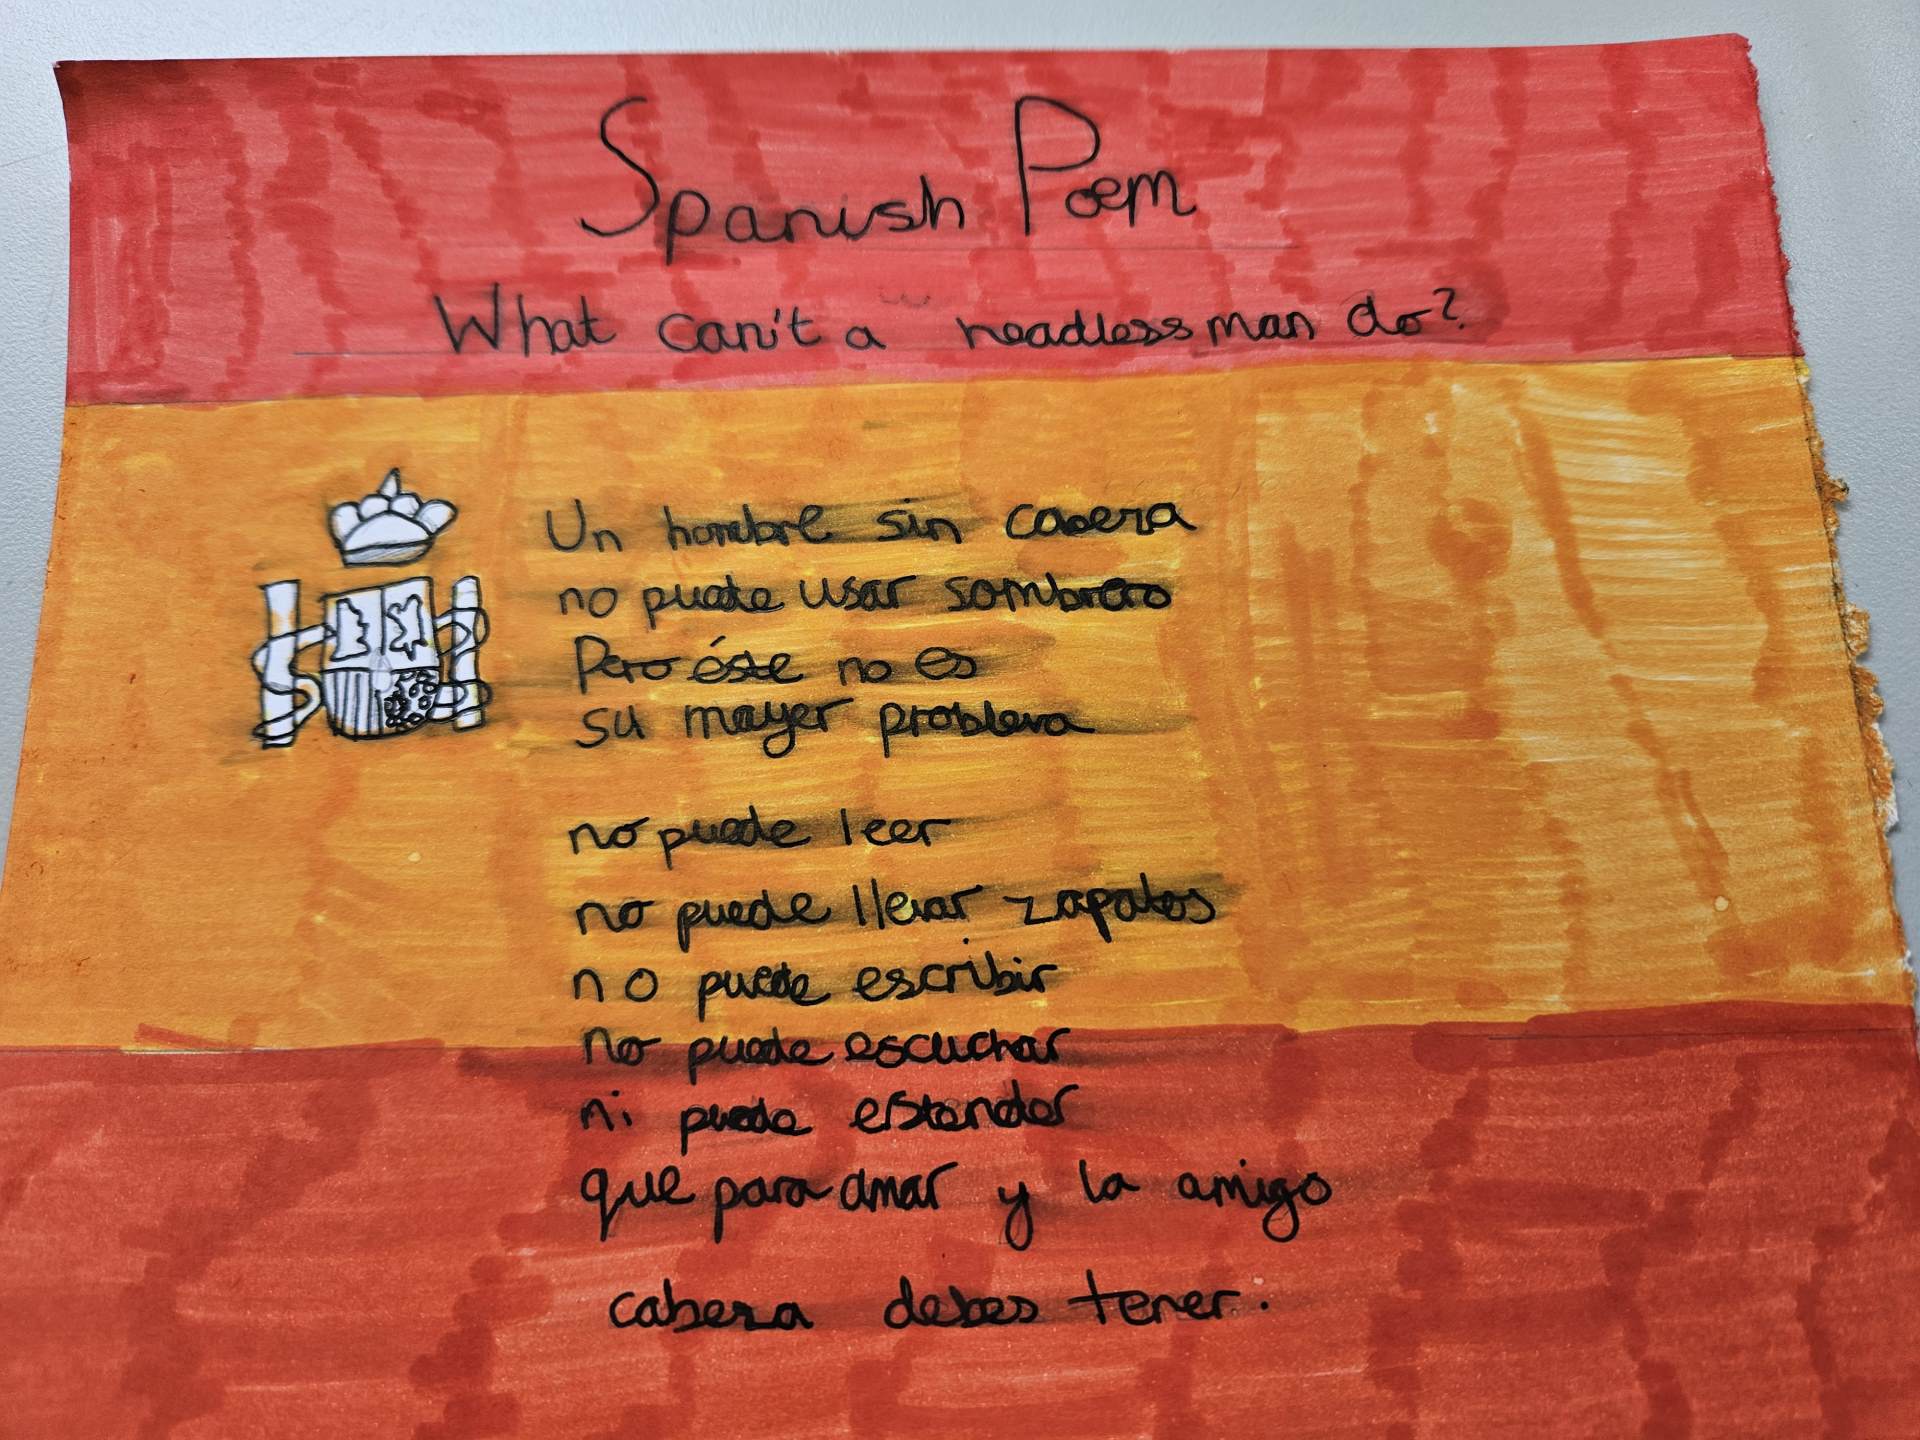 Spanish Poem
What can't a headless man do?
Un hombre sin cabeza
no puede usar sombrero
Pero éste no es
su mayer problema
no puede leer
no puede llevar zapatos
no puede escribir
no puede escuchar
ni puede estender
que para amar y la amigo
cabeza debes tener.